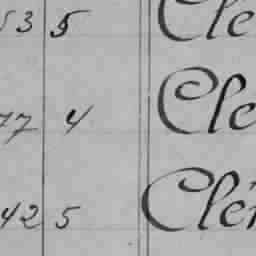 53 5 Cle
77 4 Cle
42 5 Clér